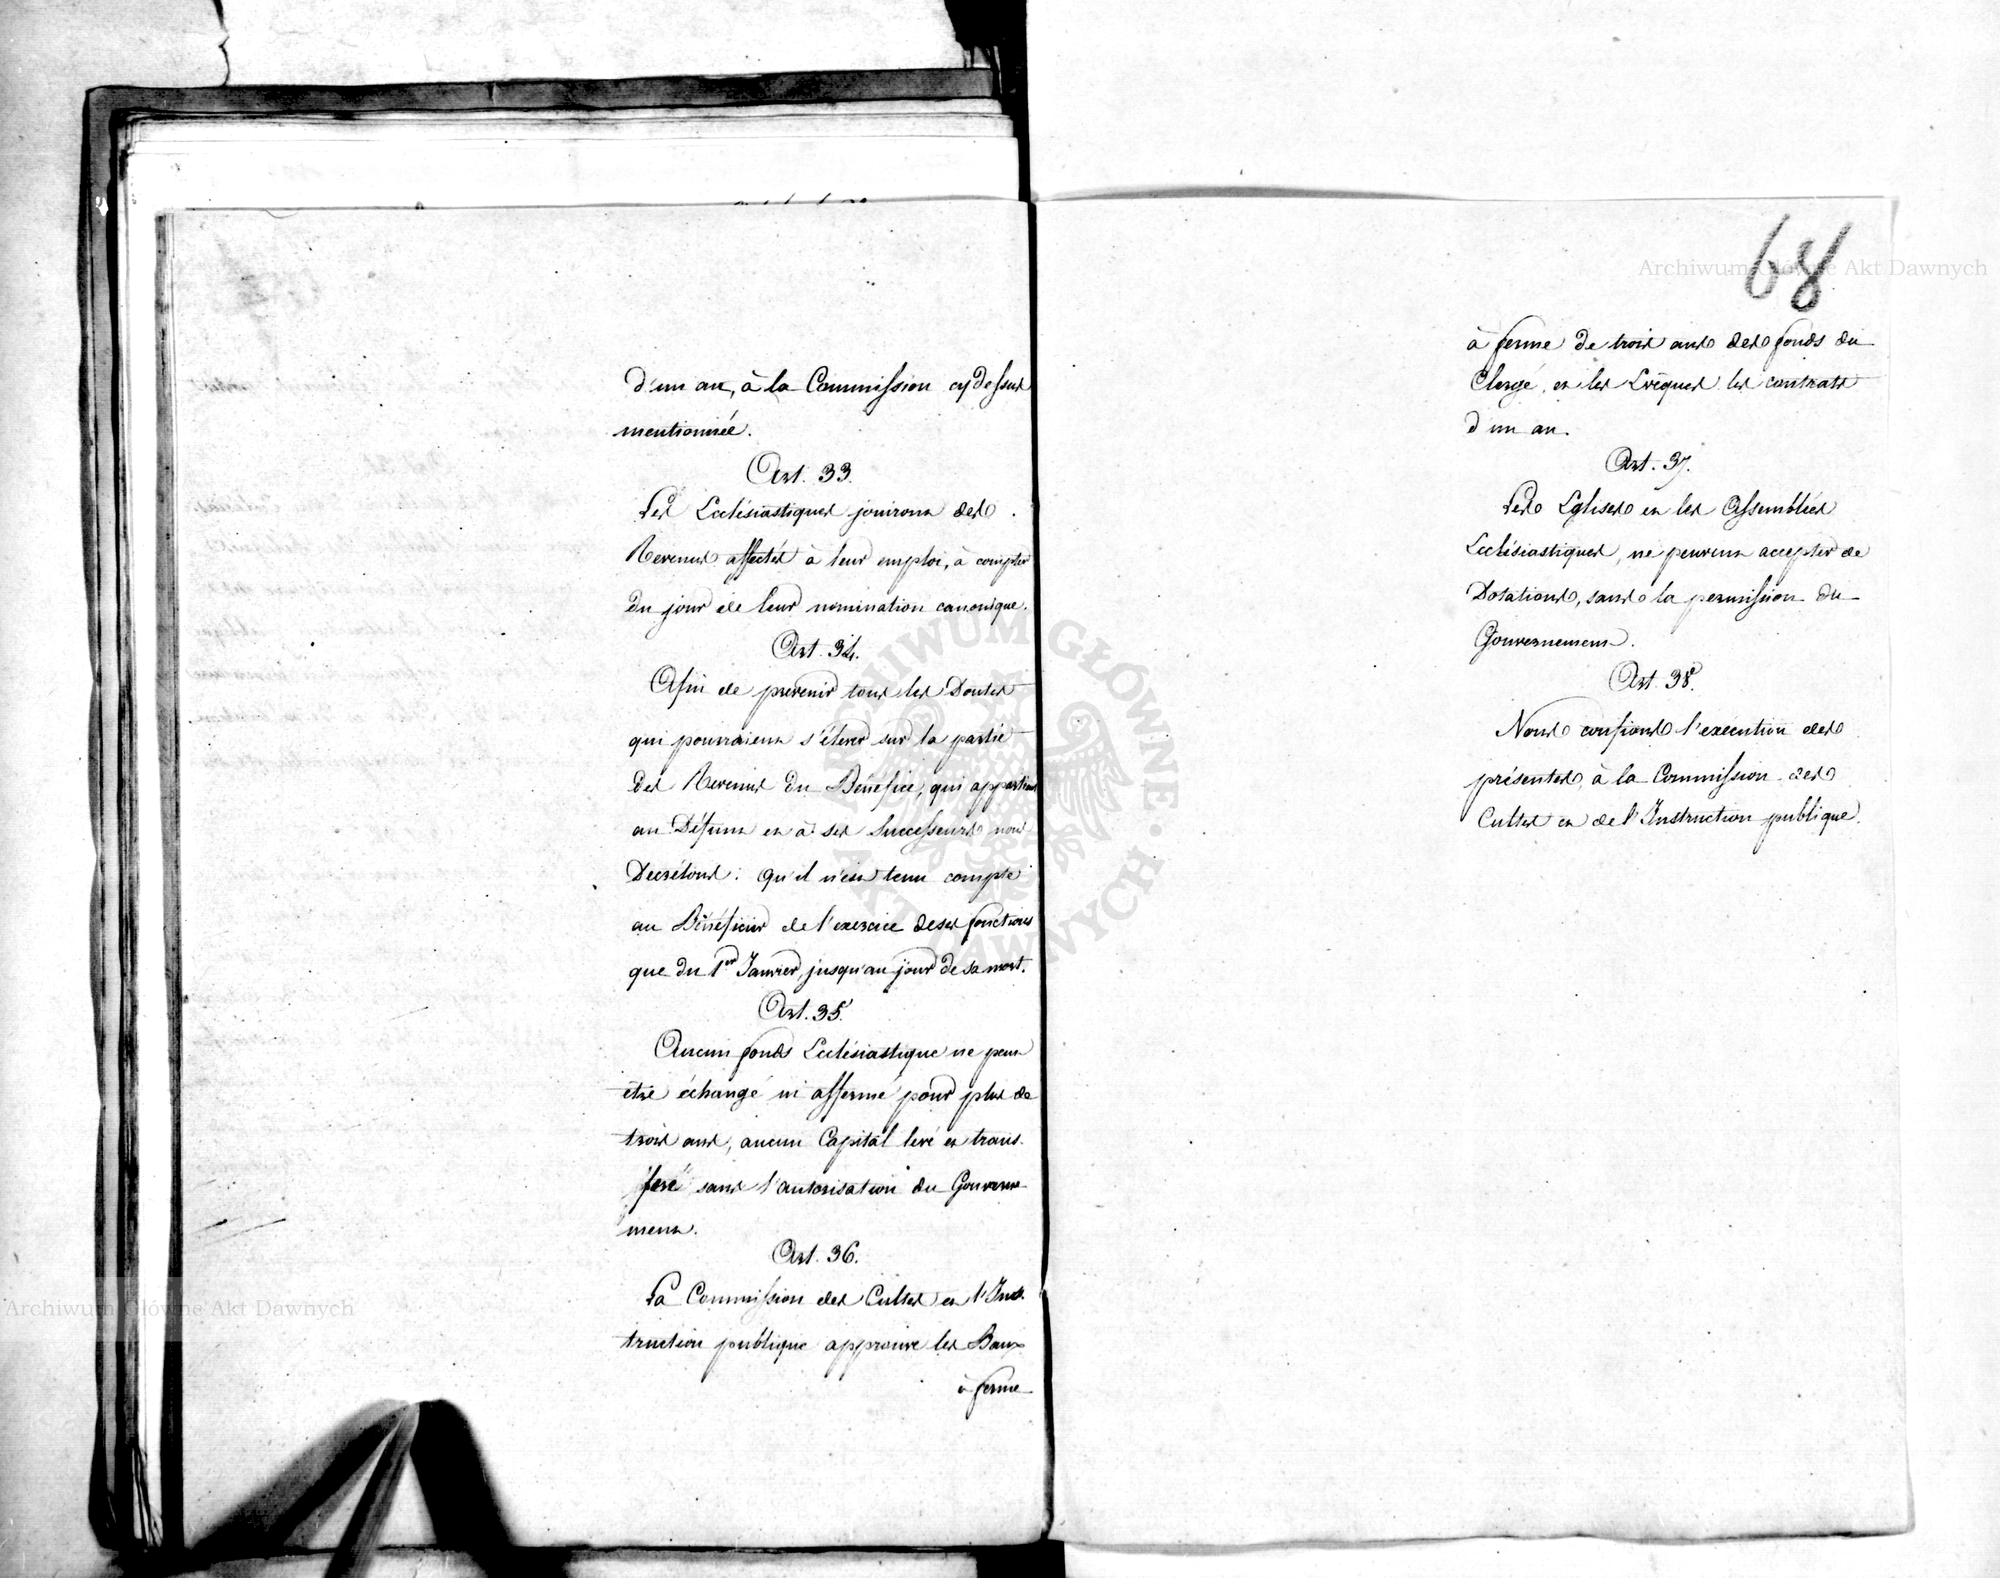 d'un an, à la Commission cy dessus
mentionnée.
Art. 33.
Les Ecclésiastiques jouiront des
Revenus affectés à leur emploi, à compter
du jour de leur nomination canonique.
Art. 34.
Afin de prevenir tous les Doutes
qui pourraient s'élever sur la partie
des Revenus du Bénéfice, qui appartient
au Défunt et à ses Successeurs nous
Decrétons: qu'il n'est tenu compte
au Bénéficier de l'exercice de ses fonctions
que du 1er Janvier, jusqu'au jour de sa mort.
Art. 35.
Aucun fonds Ecclésiastique ne peut
etre échangé ni affermé pour plus de
trois ans, aucun Capital levé et trans-
feré sans l'autorisation du Gouverne-
ment.
Art. 36.
La Commission des Cultes et l'Ins-
truction publique approuve les Baux
à ferme
68
à ferme de trois ans des fonds du
Clergé, et les Evêques les contrats
d'un an.
Art. 37.
Les Eglises et les Assemblées
Ecclésiastiques, ne peuvent accepter de
Dotations, sans la permission du
Gouvernement.
Art. 38.
Nous confions l'execution des
présentes, à la Commission des
Cultes et de l'Instruction publique.
Archiwum Główne Akt Dawnych
Archiwum Główne Akt Dawnych
ARCHIWUM GŁÓWNE AKT DAWNYCH